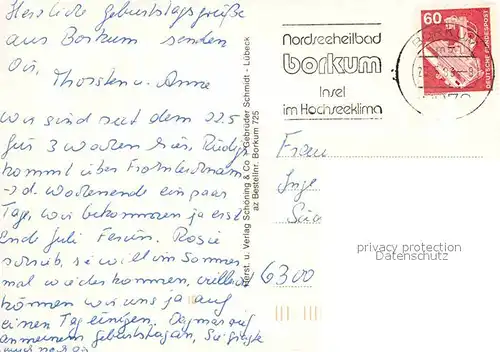 Herzliche Geburtstagsgrüße
aus Borkum senden
Dir, Thorsten u. Anne
Wir sind seit dem 22.5
für 3 Wochen hier,
kommt über
Wochenende ein paar
Tage, wir bekommen ja erst
Ende Juli Ferien. Rosie
schrieb, sie will im Sommer
mal wieder kommen, vielleicht
können wir uns ja auf
einen Tag einigen. Dagmar rief
an meinem Geburtstag an, Sie
Herst. u. Verlag Schöning & Co + Gebrüder Schmidt - Lübeck
az Bestellnr. Borkum 725
Nordseeheilbad
borkum
Insel
im Hochseeklima
60
DEUTSCHE BUNDESPOST
Frau
Inge
6300
privacy protection
Datenschutz